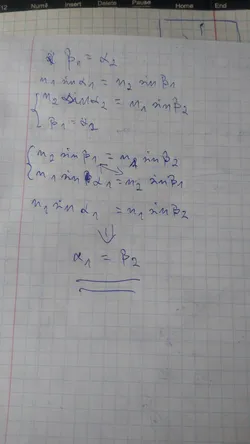 12 Numli Insert Delete Pause Home End
β₁ = α₂
n₁ sin α₁ = n₂ sin β₁
n₂ sin α₂ = n₁ sin β₂
β₁ = α₂
n₂ sin β₁ = n₁ sin β₂
n₁ sin α₁ = n₂ sin β₁
n₁ sin α₁ = n₁ sin β₂
⇓
α₁ = β₂